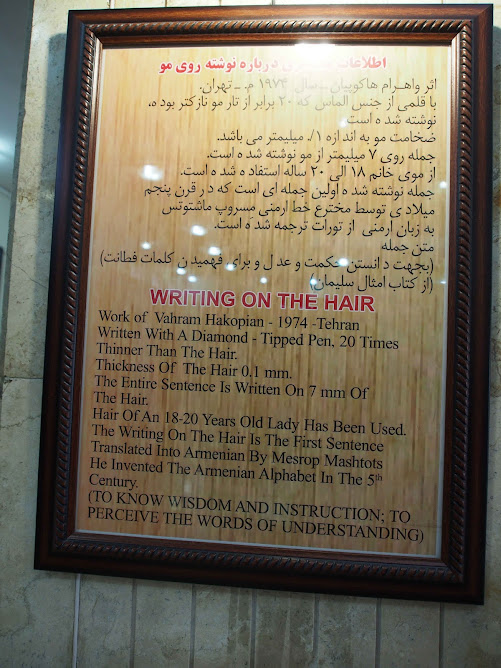 اطلاعات درباره نوشته روی مو
اثر واهرام هاکوپیان ــ سال ۱۹۷۴ م. ــ تهران.
با قلمی از جنس الماس که ۲۰ برابر از تار مو نازکتر بوده،
نوشته شده است.
ضخامت مو به اندازه ۰/۱ میلیمتر می باشد.
جمله روی ۷ میلیمتر از مو نوشته شده است.
از موی خانم ۱۸ الی ۲۰ ساله استفاده شده است.
جمله نوشته شده اولین جمله ای است که در قرن پنجم
میلادی توسط مخترع خط ارمنی مسروپ ماشتوتس
به زبان ارمنی از تورات ترجمه شده است.
متن جمله
(بجهت دانستن حکمت و عدل و برای فهمیدن کلمات فطانت)
(از کتاب امثال سلیمان)
WRITING ON THE HAIR
Work of Vahram Hakopian - 1974 -Tehran
Written With A Diamond - Tipped Pen, 20 Times
Thinner Than The Hair.
Thickness Of The Hair 0.1 mm.
The Entire Sentence Is Written On 7 mm Of
The Hair.
Hair Of An 18-20 Years Old Lady Has Been Used.
The Writing On The Hair Is The First Sentence
Translated Into Armenian By Mesrop Mashtots
He Invented The Armenian Alphabet In The 5th
Century.
(TO KNOW WISDOM AND INSTRUCTION; TO
PERCEIVE THE WORDS OF UNDERSTANDING)